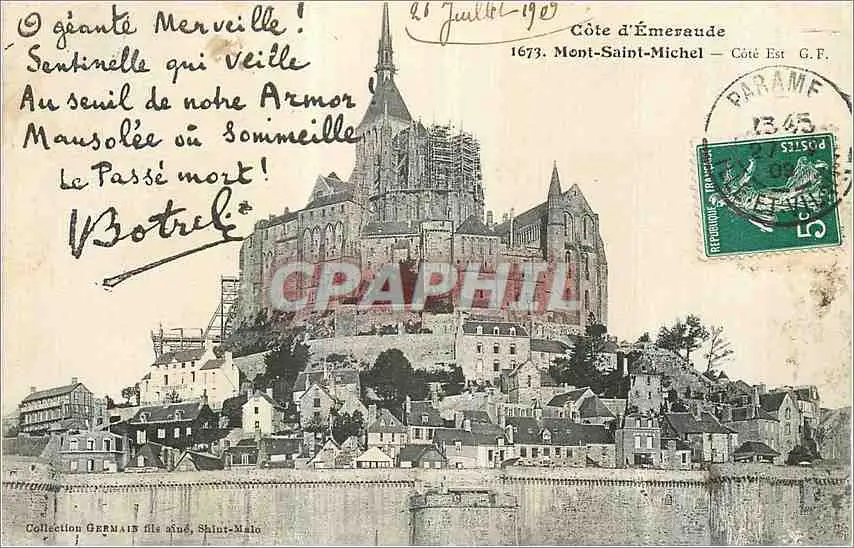 O géante Merveille !
Sentinelle qui veille
Au seuil de notre Armor
Mausolée où Sommeille
Le Passé mort !
Botrel
26 Juillet 1909
Côte d'Émeraude
1673. Mont-Saint-Michel — Côté Est G. F.
PARAMÉ
13 45
27
09
ILLE-ET-VILAINE
POSTES
REPUBLIQUE FRANÇAISE
5c
CPAPHIL
Collection GERMAIN fils aîné, Saint-Malo